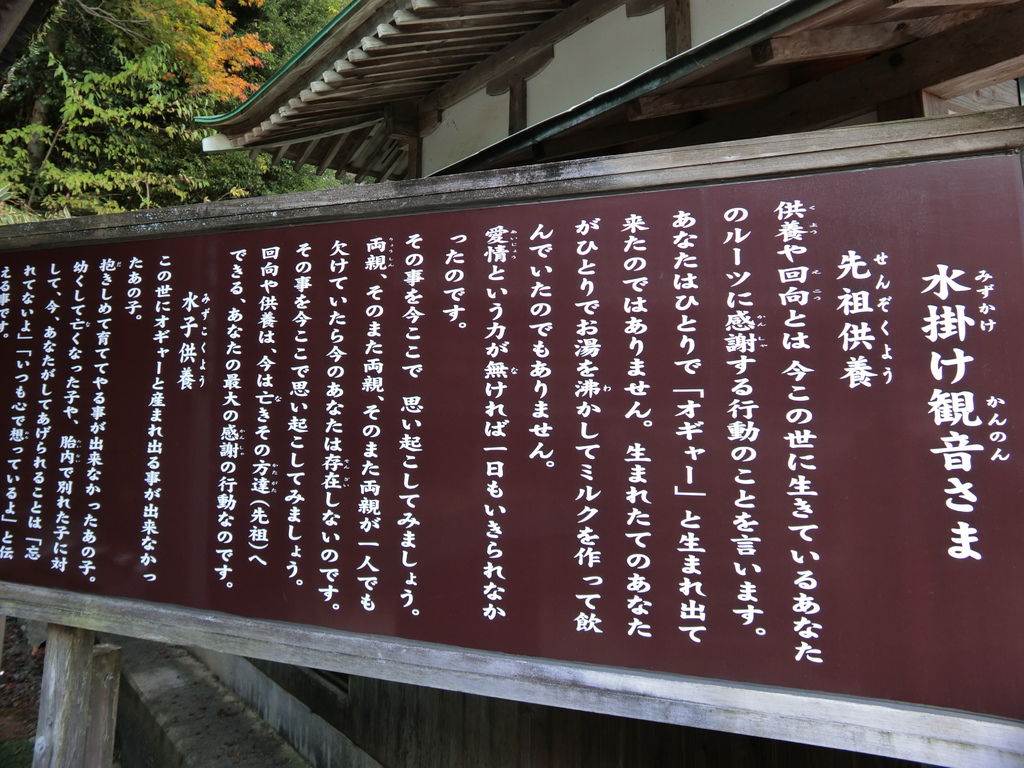 水掛け観音さま
先祖供養
供養や回向とは今この世に生きているあなた
のルーツに感謝する行動のことを言います。
あなたはひとりで「オギャー」と生まれ出て
来たのではありません。生まれたてのあなた
がひとりでお湯を沸かしてミルクを作って飲
んでいたのでもありません。
愛情という力が無ければ一日もいきられなか
ったのです。
その事を今ここで 思い起こしてみましょう。
両親、そのまた両親、そのまた両親が一人でも
欠けていたら今のあなたは存在しないのです。
その事を今ここで思い起こしてみましょう。
回向や供養は、今は亡きその方達(先祖)へ
できる、あなたの最大の感謝の行動なのです。
水子供養
この世にオギャーと産まれ出る事が出来なかっ
たあの子。
抱きしめて育ててやる事が出来なかったあの子。
幼くして亡くなった子や、胎内で別れた子に対
して、今、あなたがしてあげられることは「忘
れてないよ」「いつも心で想っているよ」と伝
える事です。